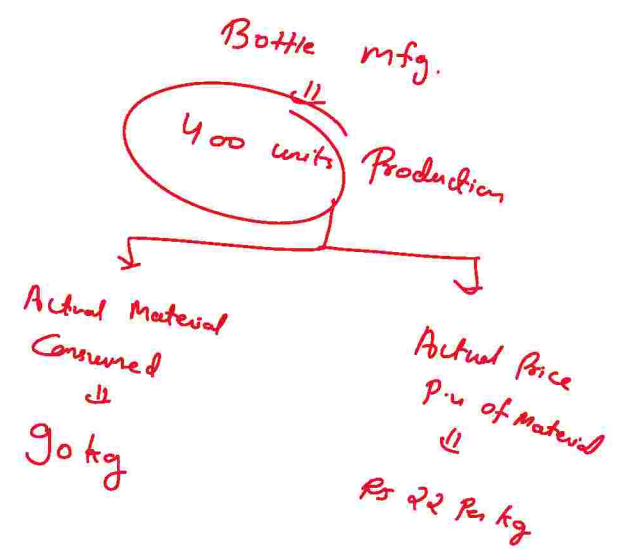 Bottle mfg.
400 units
Production
Actual Material
Consumed
90 kg
Actual Price
P.u of Material
Rs 22 Per kg